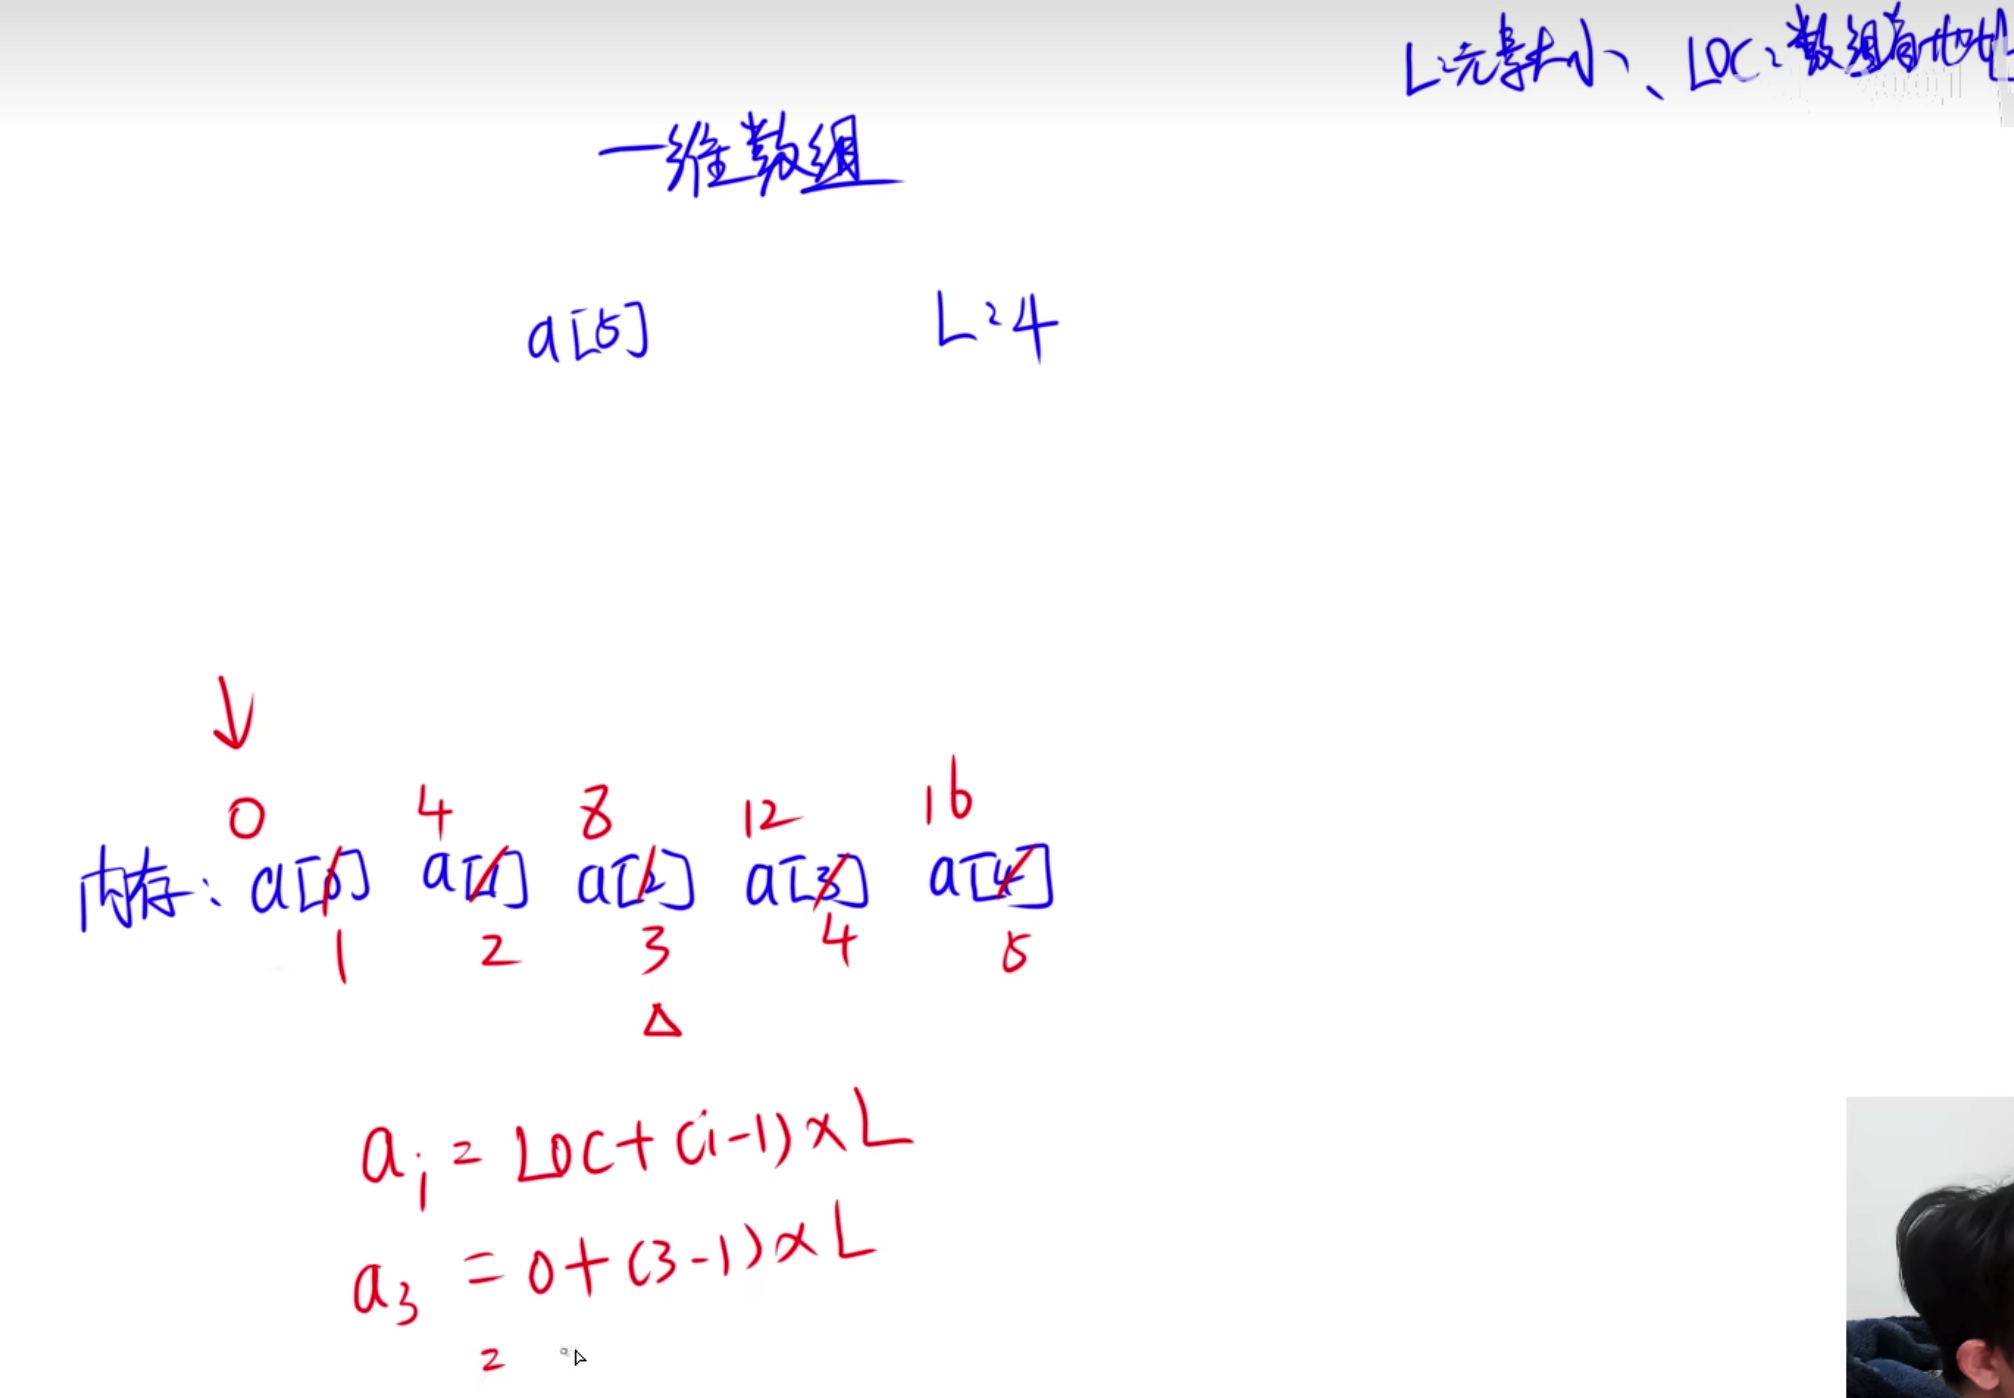 L:元素大小、LOC:数组首地址
一维数组
a[5] L:4
0 4 8 12 16
内存: a[0] a[1] a[2] a[3] a[4]
1 2 3 4 5
Δ
ai = LOC + (i-1) × L
a3 = 0 + (3-1) × L
=